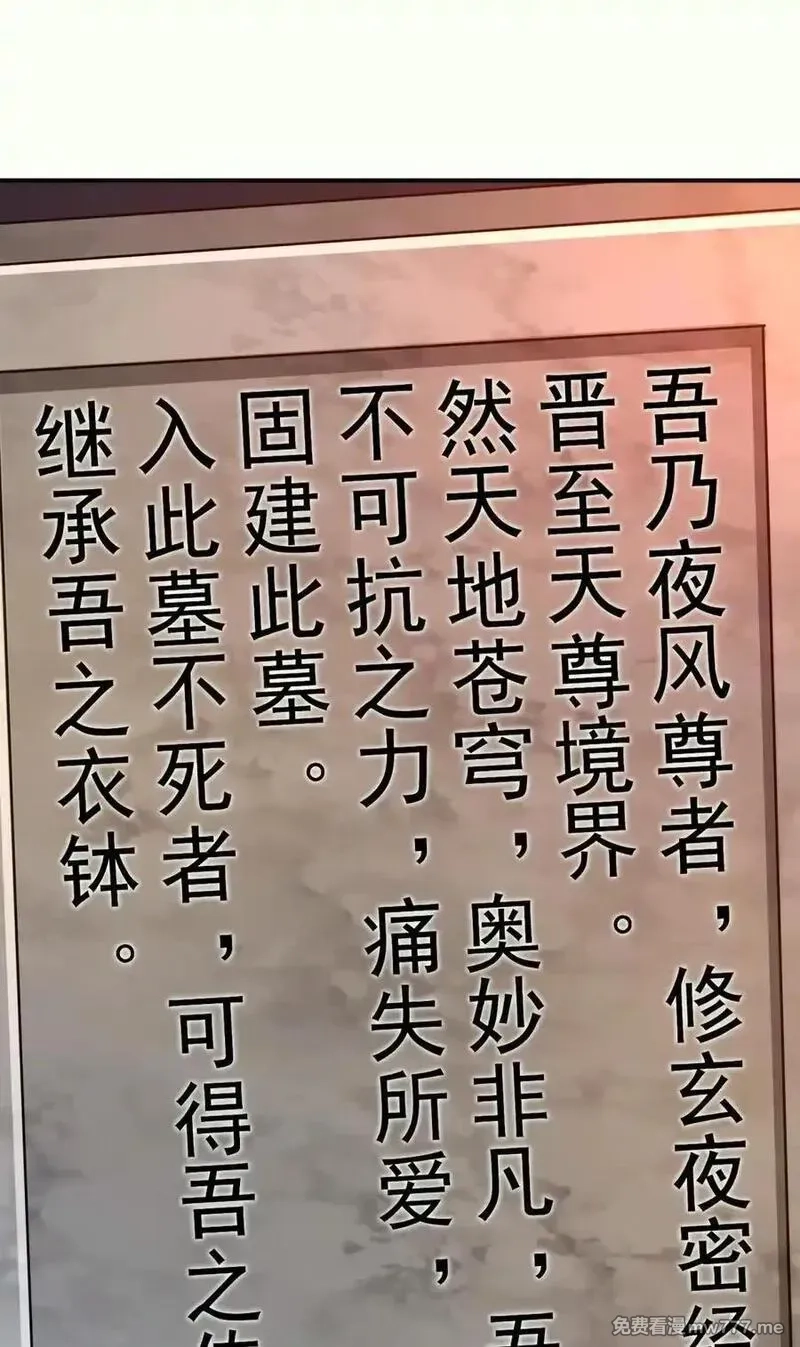 吾乃夜风尊者，修玄夜密经
晋至天尊境界。
然天地苍穹，奥妙非凡，吾
不可抗之力，痛失所爱，
固建此墓。
入此墓不死者，可得吾之
继承吾之衣钵。
免费看漫mw777.me